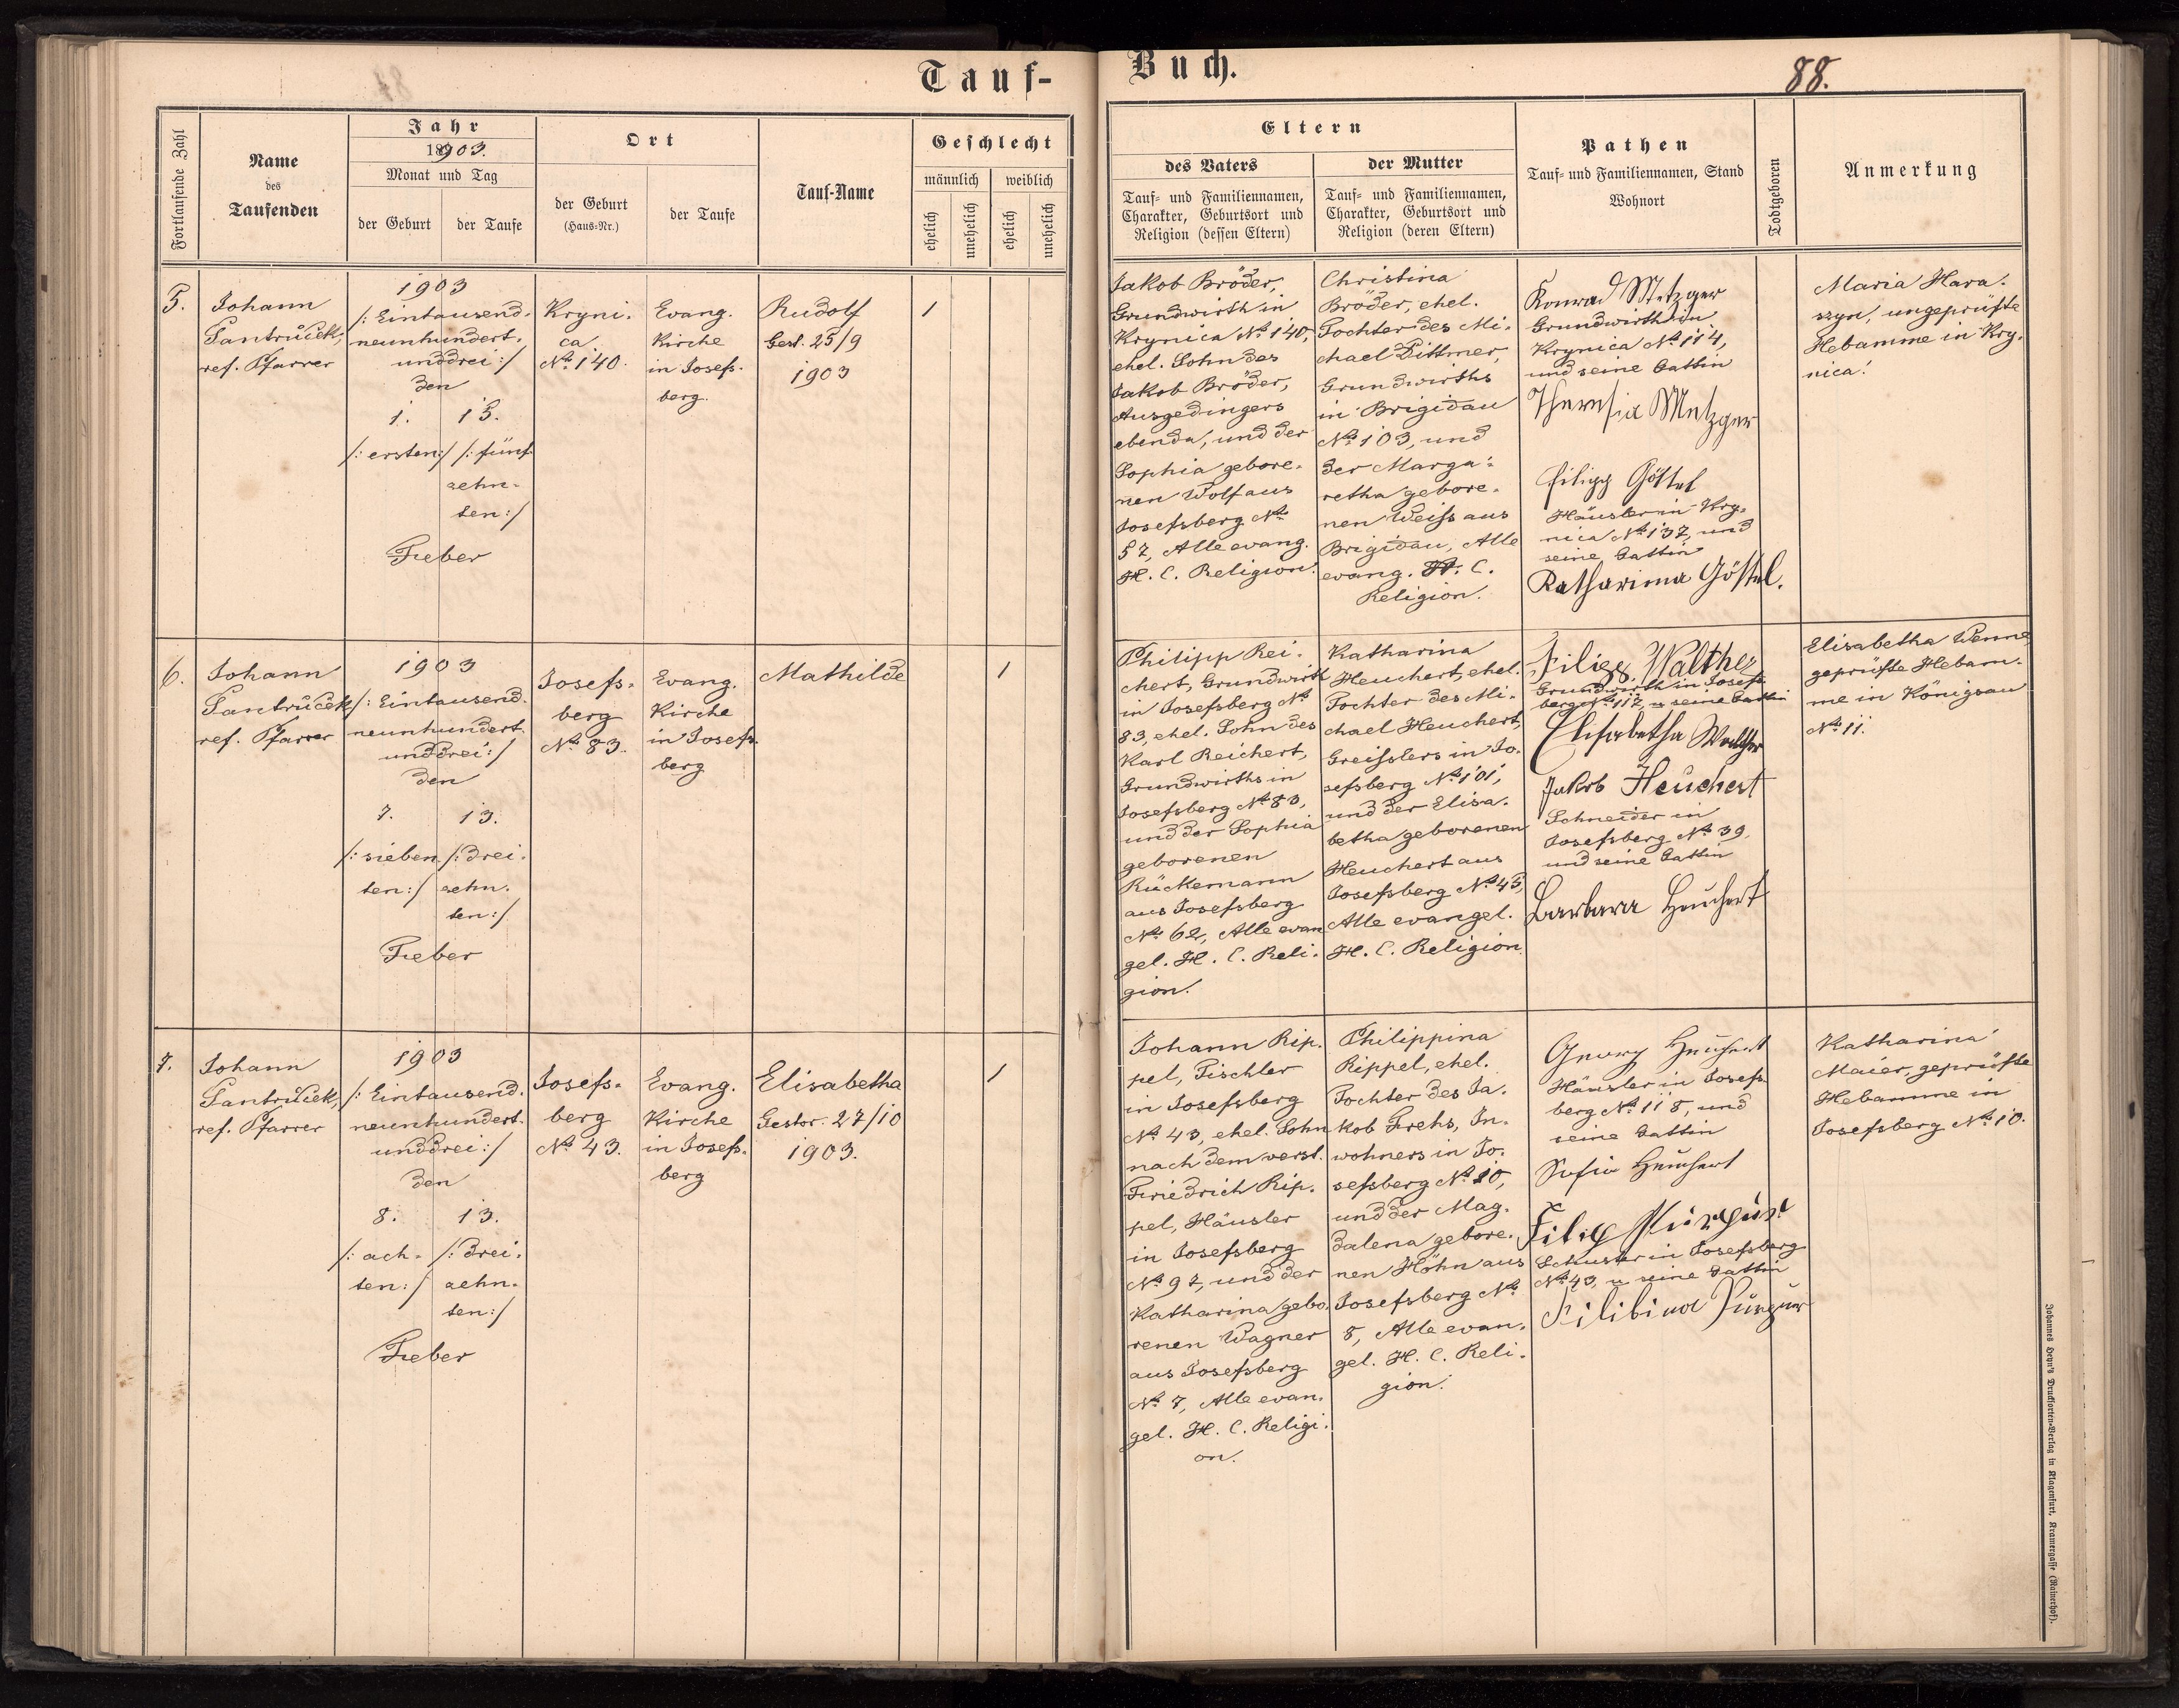 Tauf-
Buch.
88.
Fortlaufende Zahl
Name
des
Taufenden
Jahr
18903.
Monat und Tag
der Geburt
der Taufe
Ort
der Geburt
(Haus=Nr.)
der Taufe
Tauf-Name
Geschlecht
männlich
weiblich
ehelich
unehelich
ehelich
unehelich
Eltern
des Vaters
Tauf= und Familiennamen,
Charakter, Geburtsort und
Religion (dessen Eltern)
der Mutter
Tauf= und Familiennamen,
Charakter, Geburtsort und
Religion (deren Eltern)
Pathen
Tauf= und Familiennamen, Stand
Wohnort
Todtgeboren
Anmerkung
5.
Johann
Pantrůček,
ref. Pfarrer
1903
/: Eintausend-
neunhundert-
unddrei :/
den
1.
15.
/: ersten :/
/: fünf-
zehn-
ten :/
Feber
Kryni-
ca
No. 140.
Evang.
Kirche
in Josefs-
berg.
Rudolf
Gest. 25/9
1903
1
Jakob Bröder,
Grundwirth in
Krynica No. 140,
ehel. Sohn des
Jakob Bröder,
Ausgedingers
ebenda, und der
Sophia gebore-
nen Wolf aus
Josefsberg No.
57, Alle evang.
H. C. Religion.
Christina
Bröder, ehel.
Tochter des Mi-
chael Dittmer,
Grundwirths
in Brigidau
No. 103, und
der Marga-
retha gebore-
nen Weiss aus
Brigidau, Alle
evang. H. C.
Religion.
Konrad Metzger
Grundwirth in
Krynica No. 114,
und seine Gattin
Theresia Metzger
Filipp Göttel
Häusler in Kry-
nica No. 137, und
seine Gattin
Katharina Göttel.
Maria Hara-
szyn, ungeprüfte
Hebamme in Kry-
nica.
6.
Johann
Pantrůček
ref. Pfarrer
1903
/: Eintausend-
neunhundert-
unddrei :/
den
7.
13.
/: sieben-
ten :/
/: drei-
zehn-
ten :/
Feber
Josefs-
berg
No. 83.
Evang.
Kirche
in Josefs-
berg
Mathilde
1
Philipp Rei-
chert, Grundwirth
in Josefsberg No.
83, ehel. Sohn des
Karl Reichert,
Grundwirths in
Josefsberg No. 83,
und der Sophia
geborenen
Rückemann
aus Josefsberg
No. 62, Alle evan
gel. H. C. Reli-
gion.
Katharina
Heuchert, ehel.
Tochter des Mi-
chael Heuchert,
Greisslers in Jo-
sefsberg No. 101,
und der Elisa-
betha geborenen
Heuchert aus
Josefsberg No. 45,
Alle evangel.
H. C. Religion.
Filipp Walther
Grundwirth in Josefs-
berg No. 117, u. seine Gattin
Elisabetha Walther
Jakob Heuchert
Schneider in
Josefsberg No. 39,
und seine Gattin
Barbara Heuchert
Elisabetha Wenne,
geprüfte Hebam-
me in Königsau
No. 11.
7.
Johann
Pantrůček,
ref. Pfarrer
1903
/: Eintausend-
neunhundert-
unddrei :/
den
8.
13.
/: ach-
ten :/
/: drei-
zehn-
ten :/
Feber
Josefs-
berg
No. 43.
Evang.
Kirche
in Josefs-
berg
Elisabetha
Gestor. 27/10
1903.
1
Johann Rip-
pel, Tischler
in Josefsberg
No. 43, ehel. Sohn
nach dem verst.
Friedrich Rip-
pel, Häusler
in Josefsberg
No. 97, und der
Katharina gebo-
renen Wagner
aus Josefsberg
No. 7, Alle evan-
gel. H. C. Religi-
on.
Philippina
Rippel, ehel.
Tochter des Ja-
kob Frehs, In-
wohners in Jo-
sefsberg No. 10,
und der Mag-
dalena gebore-
nen Höhn aus
Josefsberg No.
8, Alle evan-
gel. H. C. Reli-
gion.
Georg Heuchert
Häusler in Josefs-
berg No. 118, und
seine Gattin
Sofia Heuchert
Filip
Schuster in Josefsberg
No. 43, u. seine Gattin
Filibina
Katharina
Maier, geprüfte
Hebamme in
Josefsberg No. 10.
Johannes Heyn's Drucksorten=Verlag in Klagenfurt, Kramergasse (Rainerhof).